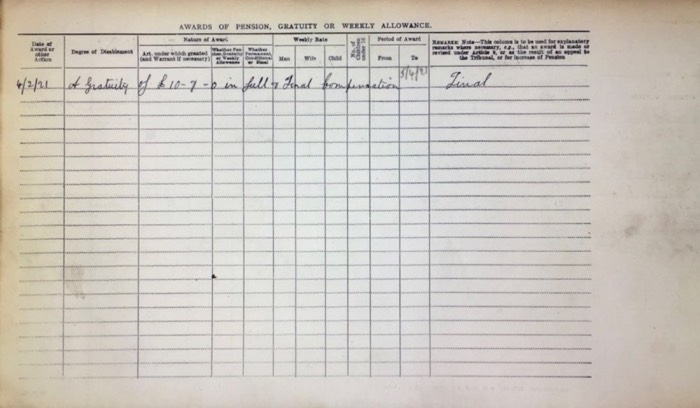 AWARDS OF PENSION, GRATUITY OR WEEKLY ALLOWANCE.
Date of Award or other Action
Degree of Disablement
Nature of Award
Art. under which granted (and Warrant if necessary)
Whether Pension, Gratuity or Weekly Allowance
Whether Permanent, Conditional or Final
Weekly Rate
Man
Wife
Child
No. of Children under 16
Period of Award
From
To
REMARKS Note—This column is to be used for explanatory remarks where necessary, e.g., that an award is made or revised under Article , or as the result of an appeal to the Tribunal, or for increase of Pension
4/2/21 A Gratuity of £10-7-0 in full & Final Compensation 3/4/21 Final